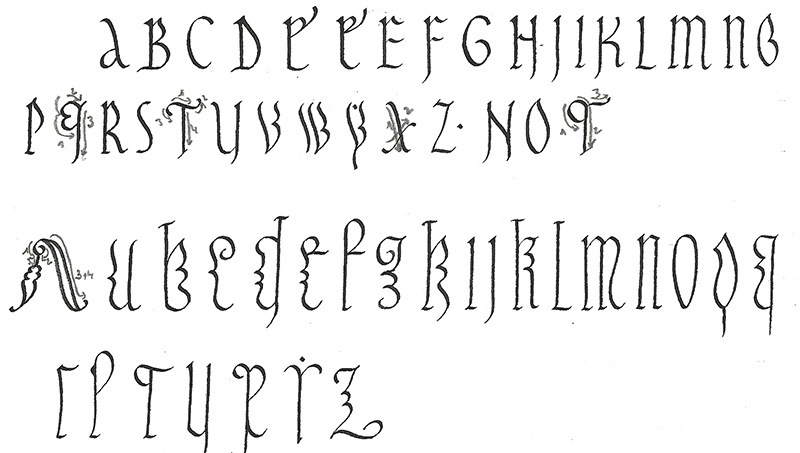 a B C D E E E F G H J I K L m n o
P q R S T U V W Y X Z. N O T
A u b c d e f g h i j k l m n o p q
r s T u x y z